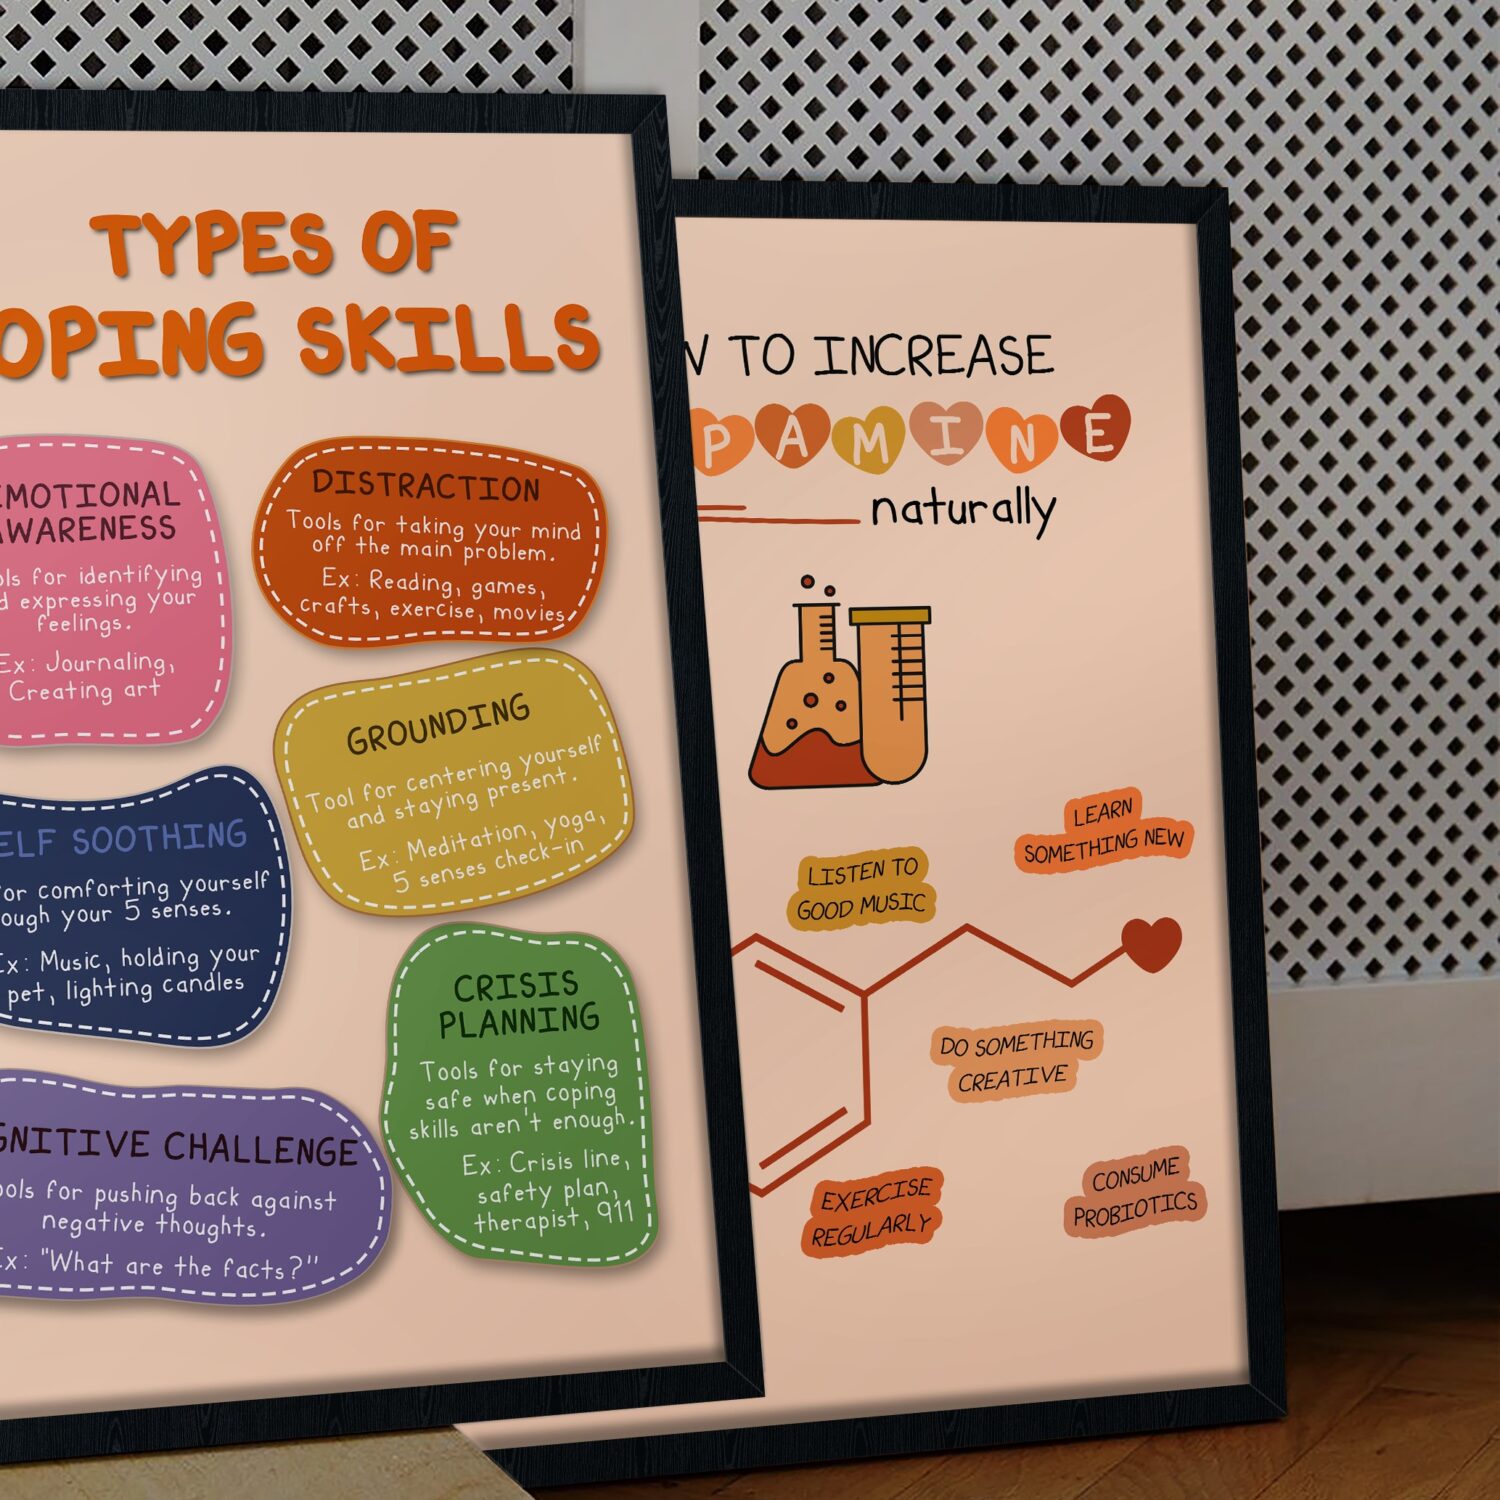 TYPES OF
OPING SKILLS
EMOTIONAL
AWARENESS
ols for identifying
d expressing your
feelings.
Ex: Journaling,
Creating art
DISTRACTION
Tools for taking your mind
off the main problem.
Ex: Reading, games,
crafts, exercise, movies
GROUNDING
Tool for centering yourself
and staying present.
Ex: Meditation, yoga,
5 senses check-in
ELF SOOTHING
for comforting yourself
ough your 5 senses.
Ex: Music, holding your
pet, lighting candles
CRISIS
PLANNING
Tools for staying
safe when coping
skills aren't enough.
Ex: Crisis line,
safety plan,
therapist, 911
GNITIVE CHALLENGE
ools for pushing back against
negative thoughts.
Ex: "What are the facts?"
W TO INCREASE
PAMINE
naturally
LEARN
SOMETHING NEW
LISTEN TO
GOOD MUSIC
DO SOMETHING
CREATIVE
EXERCISE
REGULARLY
CONSUME
PROBIOTICS